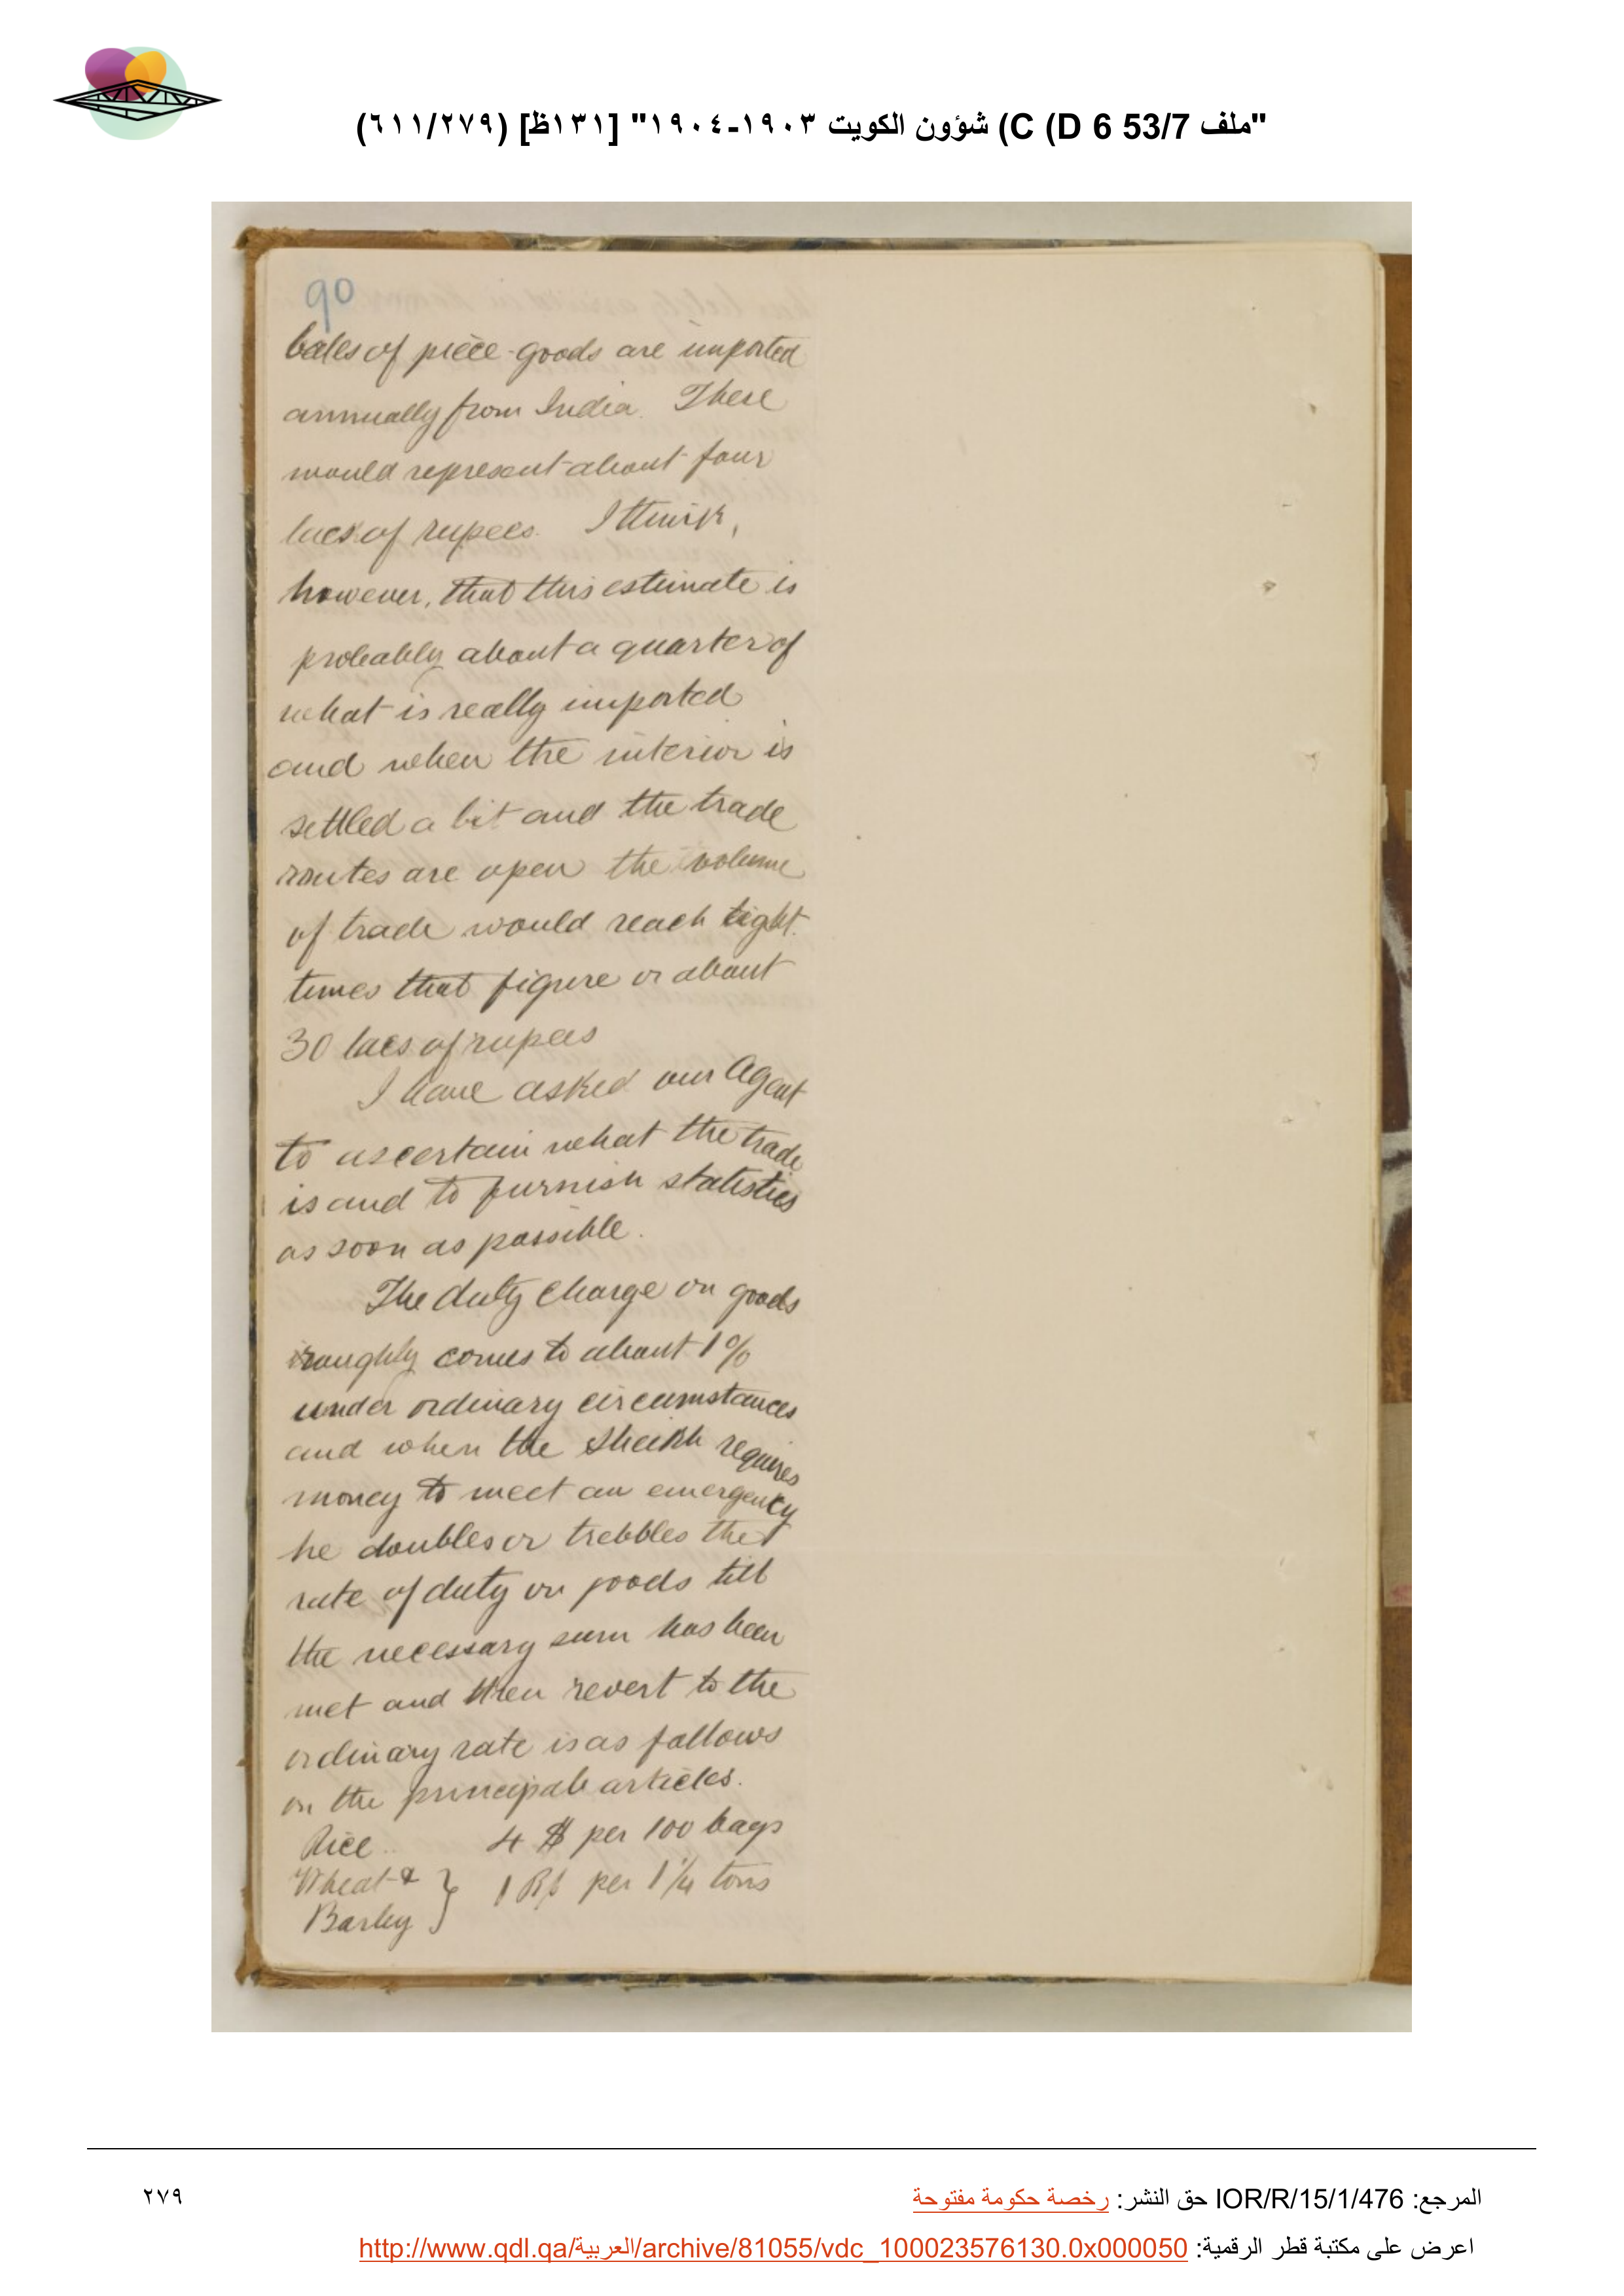 "ملف 53/7 D 6) C) شؤون الكويت ١٩٠٣-١٩٠٤" [١٣١ظ] (٦١١/٢٧٩)
90
bales of piece-goods are imported
annually from India. These
would represent about four
lacs of rupees. I think,
however, that this estimate is
probably about a quarter of
what is really imported
and when the interior is
settled a bit and the trade
routes are open the volume
of trade would reach eight
times that figure or about
30 lacs of rupees
I have asked our Agent
to ascertain what the trade
is and to furnish statistics
as soon as possible.
The duty charge on goods
roughly comes to about 1%
under ordinary circumstances
and when the Sheikh requires
money to meet an emergency
he doubles or trebbles the
rate of duty on goods till
the necessary sum has been
met and then revert to the
ordinary rate is as follows
on the principal articles.
Rice .. 4 $ per 100 bags
Wheat & } 1 Rs per 1 1/4 tons
Barley
المرجع: IOR/R/15/1/476 حق النشر: رخصة حكومة مفتوحة
٢٧٩
اعرض على مكتبة قطر الرقمية: http://www.qdl.qa/العربية/archive/81055/vdc_100023576130.0x000050